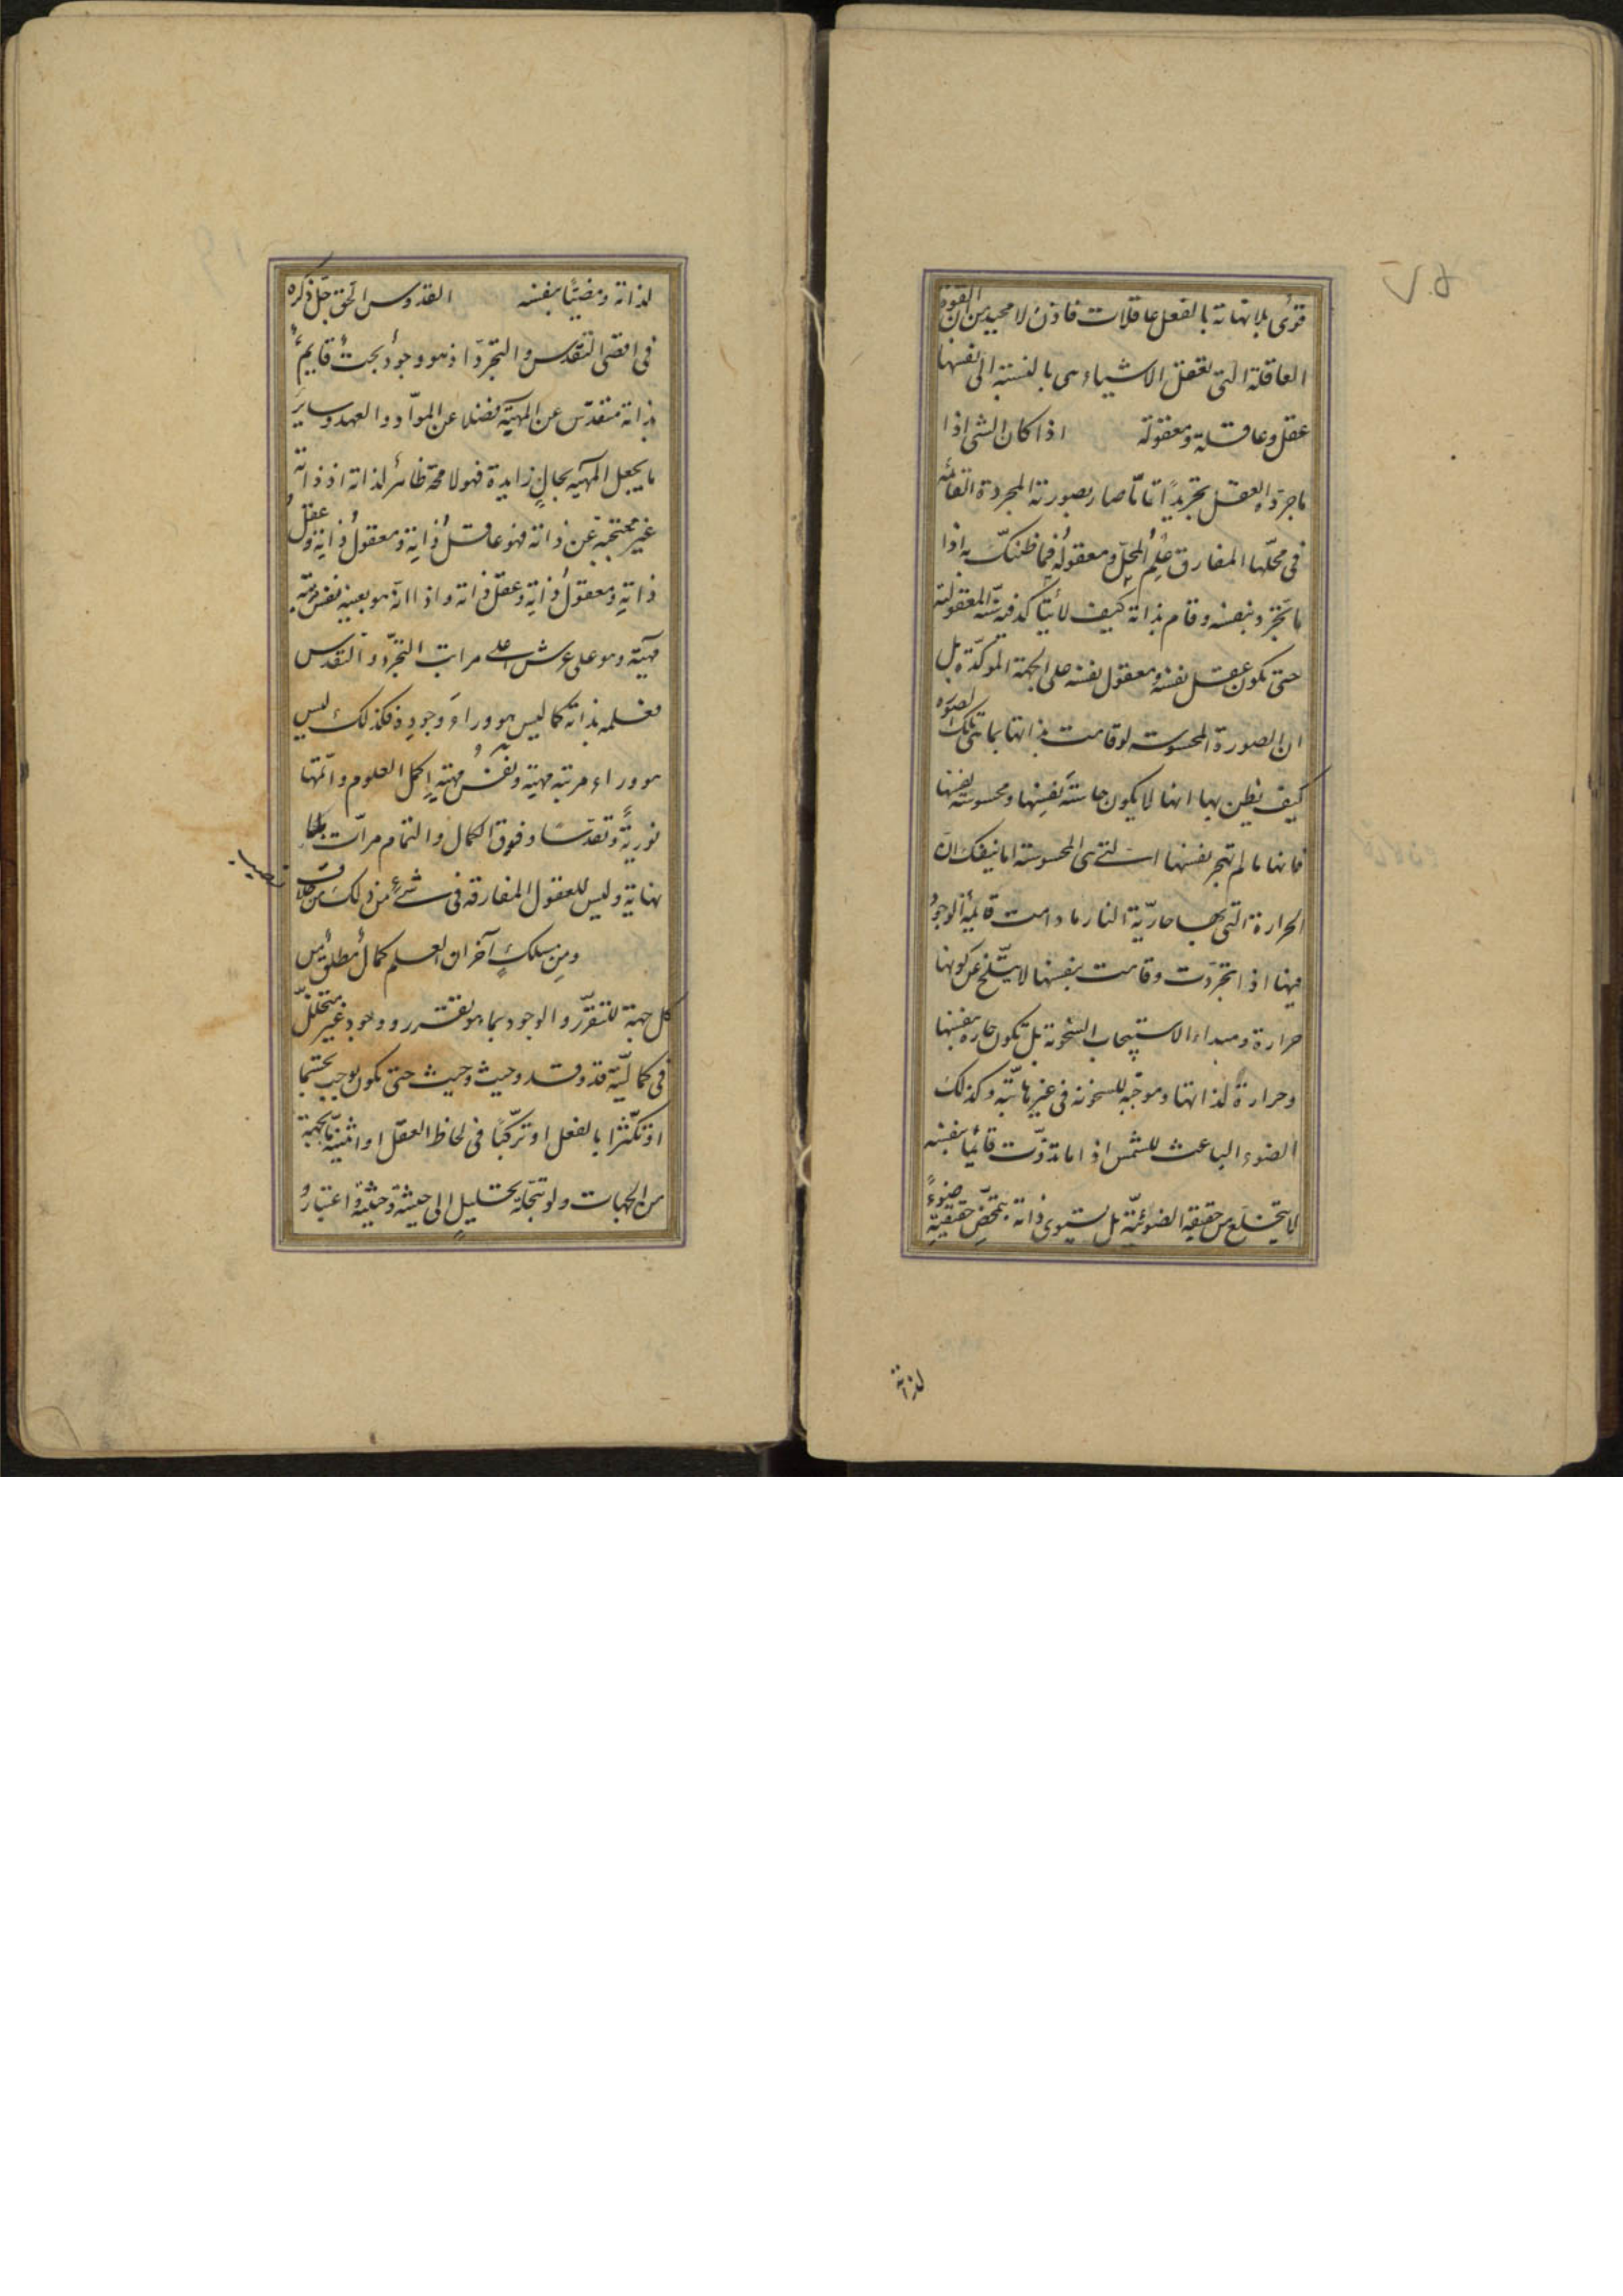 قوى بلا نهاية بالفعل عاقلات فاذن لا محيد من ان القوة
العاقلة التى تعقل الاشياء هى بالنسبة الى نفسها
عقل وعاقلة ومعقولة اذا كان الشى اذا
ما جرده العقل تجريدًا تامّا صار بصورته المجردة القائمة
فى محلها المفارق علم المحلّ ومعقوله فما ظنك به اذا
ما تجرد بنفسه وقام بذاته كيف لا يتأكد فيه المعقولية
حتى يكون عقل نفسه ومعقول نفسه على الجهة الموكدة بل
ان الصورة المحسوسة لو قامت بذاتها بما هى تلك الصورة
كيف يظن بها انها لا يكون حاسّة نفسِها ومحسوسة نفسها
فانها ما لم تهجر نفسها التى هى المحسوسة اما ينفك ان
الحرارة التى بها حارّية النار ما دامت قائمة الوجود
فيها اذا تجرّدت وقامت بنفسها لا ينسلخ عن كونها
حرارة ومبداء الاستيجاب السخونة بل تكون حارة بنفسها
وحرارة لذاتها وموجبه للسخونه فى غيرها البتّة وكذلك
الضوء الباعث للشمس اذا ما تذوّت قائما بنفسه
لا يتخلع من حقيقة الضوئيّة بل يستوى ذاته بتمحّض حقيقيته ضوءً
لذاته
لذاته ومضيئا بنفسه القدوس الحق جلّ ذكره
فى اقصى التقدس والتجرد اذ هو وجودٌ بحتٌ قايمٌ
بذاته متقدّس عن المهيّة فضلا عن الموادّ والعهد وساير
ما يجعل المهيّه بحالٍ زايدة فهو لا محة ظاهرٌ لذاته اذ ذاته
غير محتجبة عن ذاته فهو عاقلُ ذاتِه ومعقولُ ذاتِه وعقلُ
ذاتِه ومعقولُ ذاتِه وعقل ذاته واذ انه هو بعينه نفس مرتبة
مهيّته وهو على عرش اعلى مراتب التجرّد والتقدس
فعلمه بذاته كما ليس هو وراءَ وجودِه فكذلك ليس
هو وراء مرتبة مهيته ونفسُ مهيّتهِ اكمل العلوم واتمّها
نوريّةً وتقدّسا وفوق الكمال والتمام مراتٍ بلا
نهاية وليس للعقول المفارقه فى شىءٍ من ذلك من خلاق
نصيب
ومِن مسلكٍ آخر ان العلم كمالٌ مطلق من
كل جهة للتقرّر والوجود بما هو تقرر ووجود غير متخللّ
فى كماليّة قد وقد وحيث وحيث حتى يكون يوجب تجشّما
او تكثرا بالفعل او تركبّا فى لحاظ العقل او اثنينيّة ما بجهة
من الجهات ولو بتجلية بتحليلٍ الى حيثيةٍ وحيثيةٍ واعتبار و